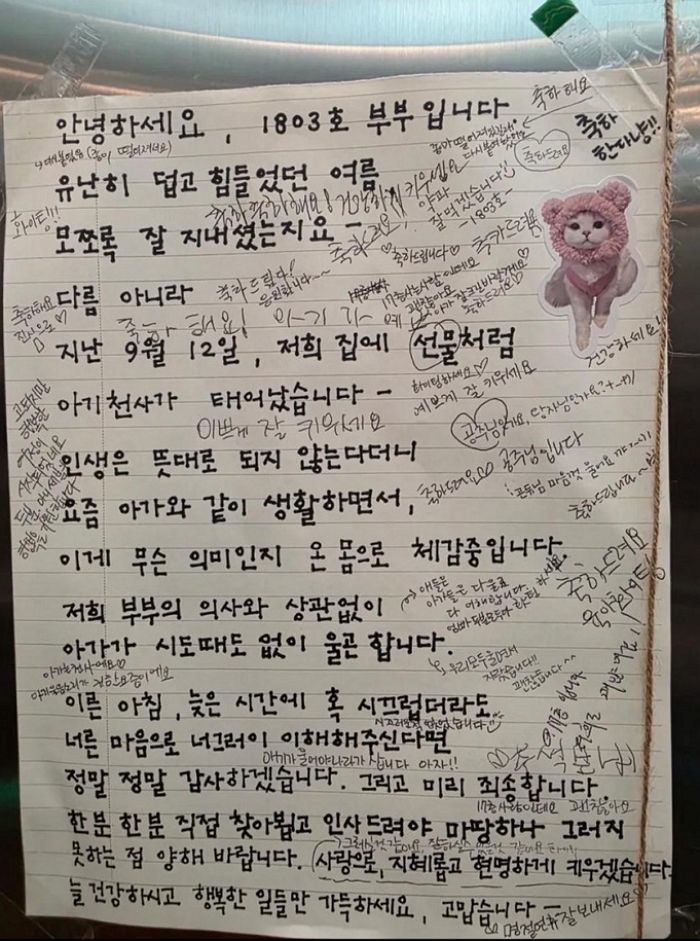 안녕하세요, 1803호 부부입니다
축하해요
축하
한다냥!!
축하드려요
유난히 덥고 힘들었던 여름
화이팅!!
축하축하해요! 건강하게 키우세요
양파
잘먹겠습니다
-1803호-
모쪼록 잘 지내셨는지요 -
축하드려요!
축하드립니다♡
다름 아니라
축하드립니다!
응원합니다~~
축하해요
진심으로♡
축하해요! 아기가
지난 9월 12일, 저희 집에 선물처럼
건강하세요!
아기천사가 태어났습니다 -
화이팅하세요♡
예쁘게 잘 키우세요
이쁘게 잘 키우세요
공주님이세요, 왕자님인가요?
공주님입니다
인생은 뜻대로 되지 않는다더니
축하드려요
축하드립니다~
요즘 아가와 같이 생활하면서,
이게 무슨 의미인지 온 몸으로 체감중입니다
저희 부부의 의사와 상관없이
애들은
아가들은 다 울죠
다 이해합니다.
아가가 시도때도 없이 울곤 합니다.
우리모두 울면서
자랐습니다!!
괜찮습니다~~
이른 아침, 늦은 시간에 혹 시끄럽더라도
너른 마음으로 너그러이 이해해주신다면
아기가 울어야 나라가 삽니다 아자!!
정말 정말 감사하겠습니다. 그리고 미리 죄송합니다.
17층 사람인데요 괜찮아요
한분 한분 직접 찾아뵙고 인사드려야 마땅하나 그러지
못하는 점 양해 바랍니다. 사랑으로, 지혜롭고 현명하게 키우겠습니다.
늘 건강하시고 행복한 일들만 가득하세요, 고맙습니다 -
명절연휴 잘보내세요